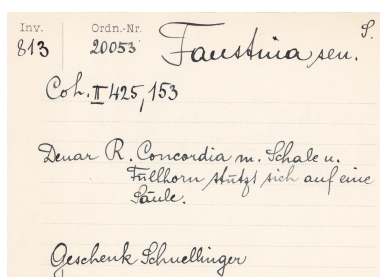 Inv. Ordn.-Nr. S.
813 20053 Faustina sen.
Coh. II 425, 153
Denar R. Concordia m. Schale u.
Füllhorn stützt sich auf eine
Säule.
Geschenk Schnellinger